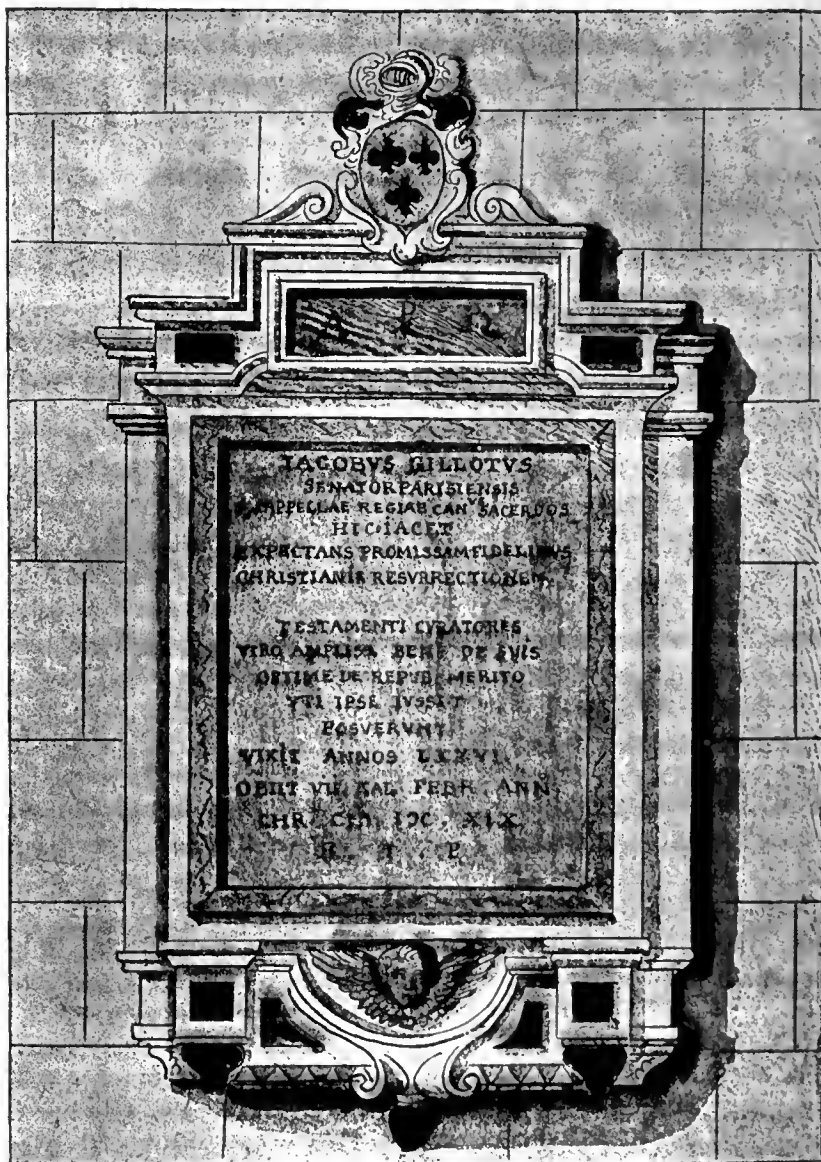 IACOBVS GILLOTVS
SENATOR PARISIENSIS
CAPPELLAE REGIAE CAN.ᵛˢ SACERDOS
HIC IACET
EXPECTANS PROMISSAM FIDELIBVS
CHRISTIANIS RESVRRECTIONEM
TESTAMENTI CVRATORES
VIRO AMPLISS. BENE DE SVIS
OPTIME DE REPVB. MERITO
VTI IPSE IVSSIT
POSVERVNT
VIXIT ANNOS LXXVI
OBIIT VII. KAL. FEBR. ANN.
CHR. CIƆ. IƆC. XIX.